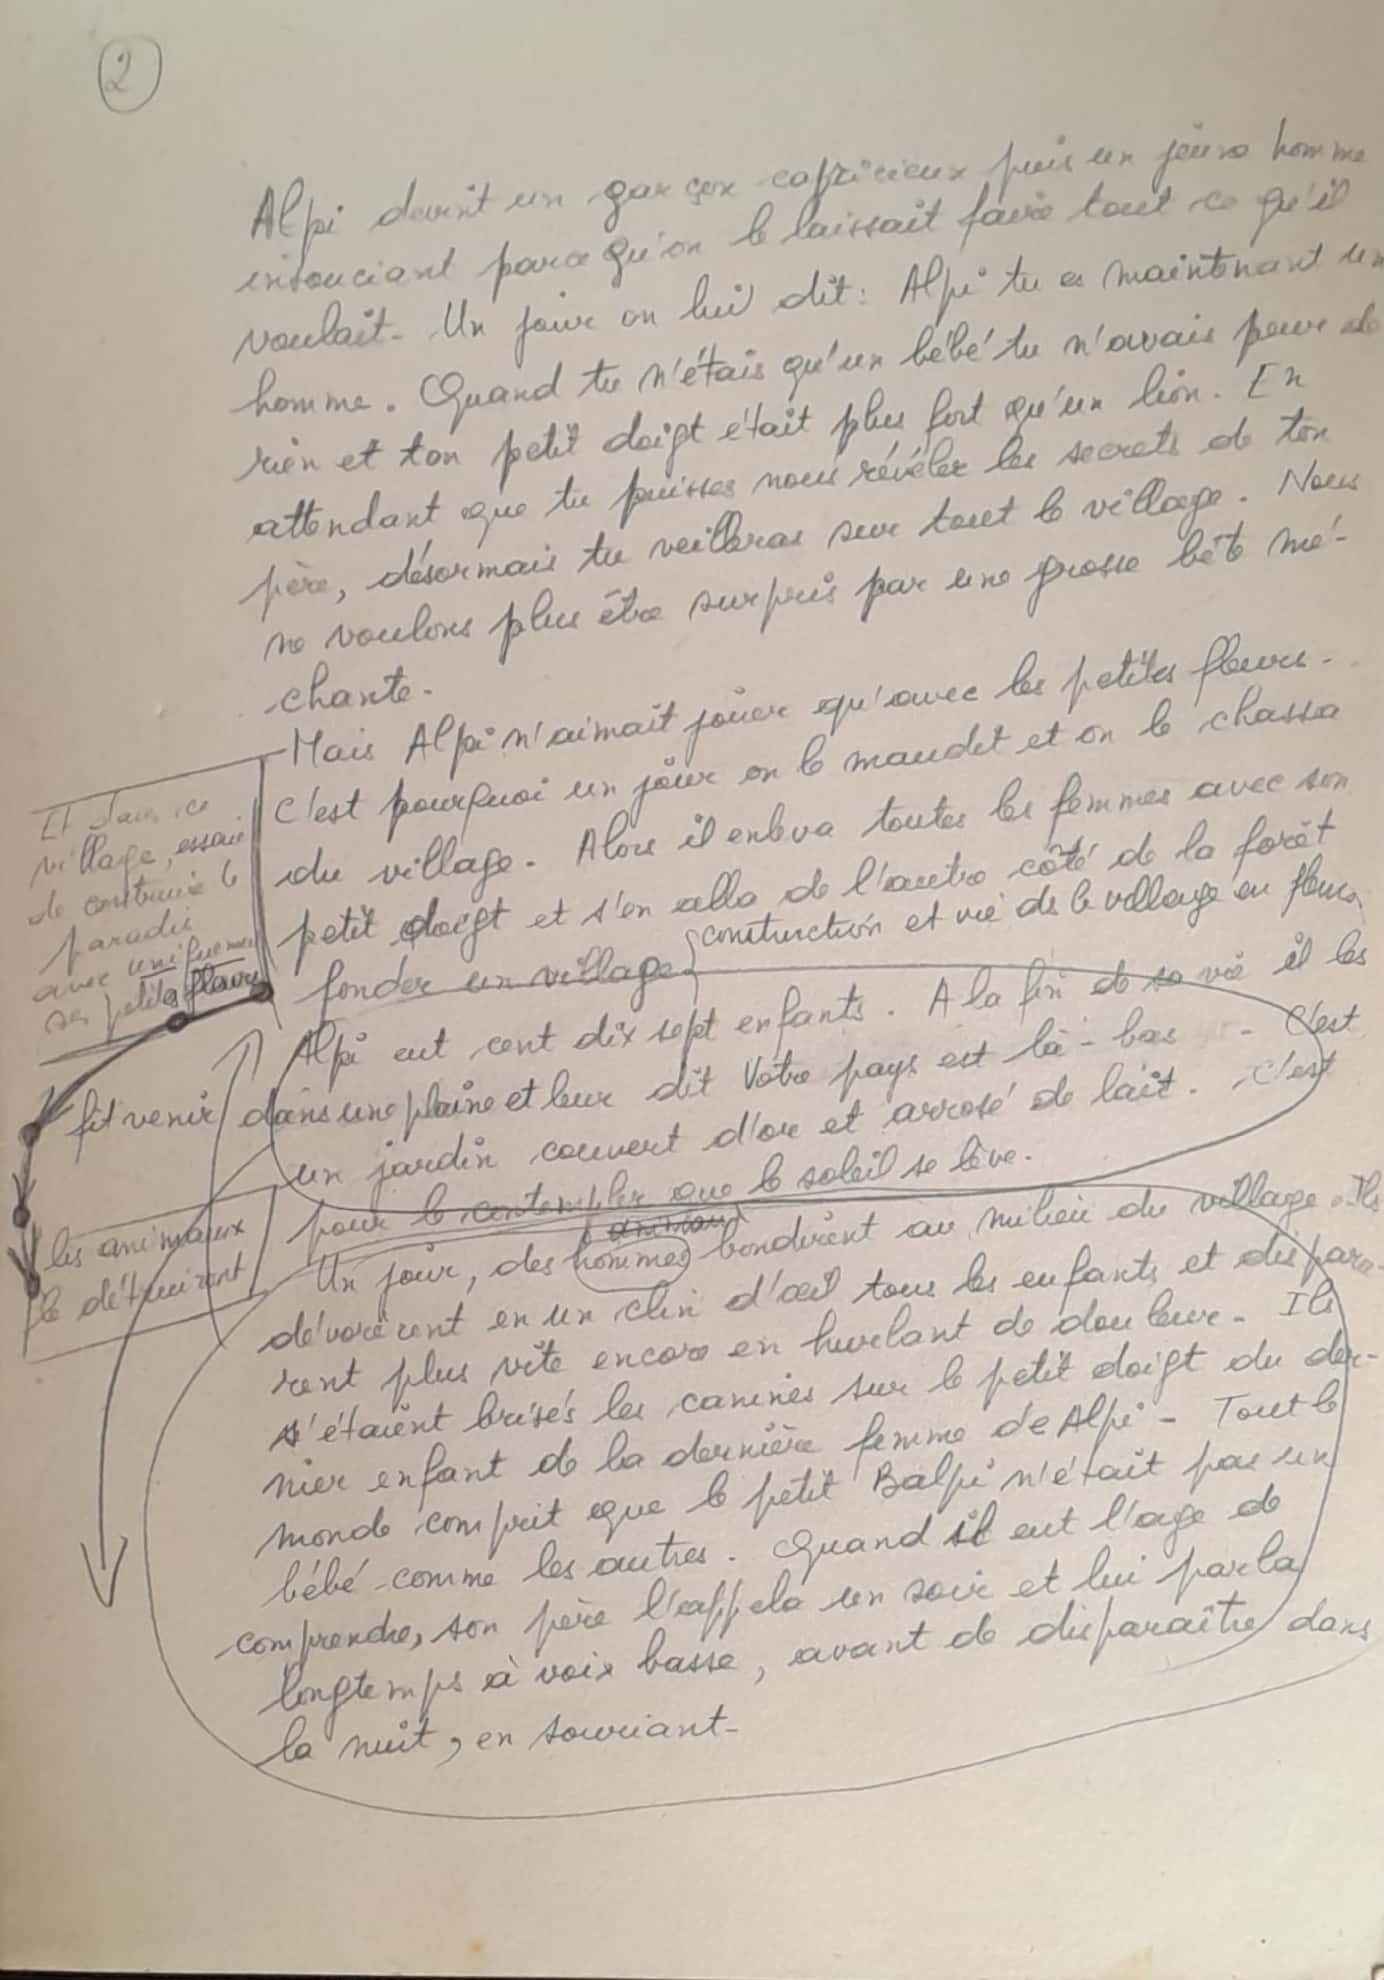 2
Alpi devint un garçon capricieux puis un jeune homme
insouciant parce qu'on le laissait faire tout ce qu'il
voulait. Un jour on lui dit : Alpi tu es maintenant un
homme. Quand tu n'étais qu'un bébé tu n'avais peur de
rien et ton petit doigt était plus fort qu'un lion. En
attendant que tu puisses nous révéler les secrets de ton
père, désormais tu veilleras sur tout le village. Nous
ne voulons plus être surpris par une grosse bête mé-
chante.
Mais Alpi n'aimait jouer qu'avec les petites fleurs.
C'est pourquoi un jour on le maudit et on le chassa
du village. Alors il enleva toutes les femmes avec son
petit doigt et s'en alla de l'autre côté de la forêt
fonder un village
construction et vie de le village en fleurs
Et dans ce
village, essaie
de construire le
paradis
avec uniquement
ses petites fleurs
Alpi eut cent dix sept enfants. A la fin de sa vie il les
fit venir dans une plaine et leur dit Votre pays est là-bas - C'est
un jardin couvert d'or et arrosé de lait. C'est
pour le contempler que le soleil se lève.
les animaux
le détruiront
animaux
Un jour, des hommes bondirent au milieu du village. Ils
dévorèrent en un clin d'œil tous les enfants et dispara-
rent plus vite encore en hurlant de douleur. Ils
s'étaient brisés les canines sur le petit doigt du der-
nier enfant de la dernière femme de Alpi - Tout le
monde comprit que le petit Balpi n'était pas un
bébé comme les autres. Quand il eut l'age de
comprendre, son père l'appela un soir et lui parla
longtemps à voix basse, avant de disparaître dans
la nuit, en souriant-